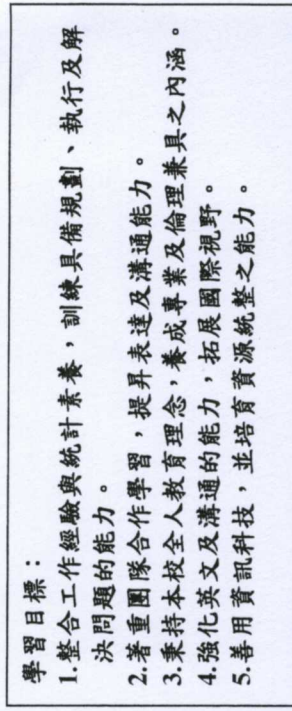 學習目標：
1.整合工作經驗與統計素養，訓練具備規劃、執行及解
決問題的能力。
2.著重團隊合作學習，提昇表達及溝通能力。
3.秉持本校全人教育理念，養成專業及倫理兼具之內涵。
4.強化英文及溝通的能力，拓展國際視野。
5.善用資訊科技，並培育資源統整之能力。